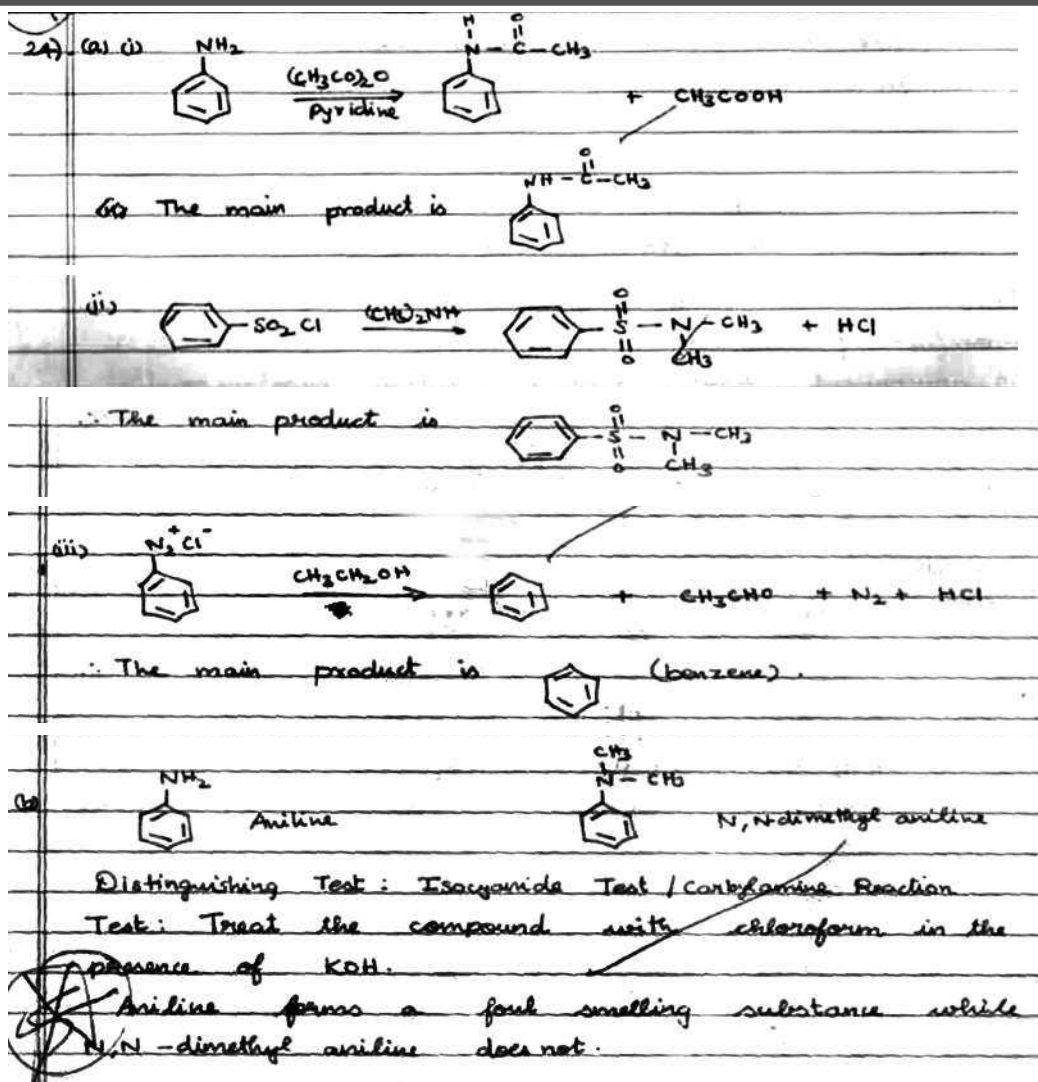 24) (a) (i) NH2 (CH3CO)2O Pyridine H N - C - CH3 O + CH3COOH
The main product is NH - C - CH3 O
(ii) SO2Cl (CH3)2NH O S O - N - CH3 CH3 + HCl
∴ The main product is O S O - N - CH3 CH3
(iii) N2+Cl- CH3CH2OH + CH3CHO + N2 + HCl
∴ The main product is (benzene).
(b) NH2 Aniline CH3 N - CH3 N, N-dimethyl aniline
Distinguishing Test : Isocyanide Test / Carbylamine Reaction
Test : Treat the compound with chloroform in the
presence of KOH.
Aniline forms a foul smelling substance while
N,N - dimethyl aniline does not.